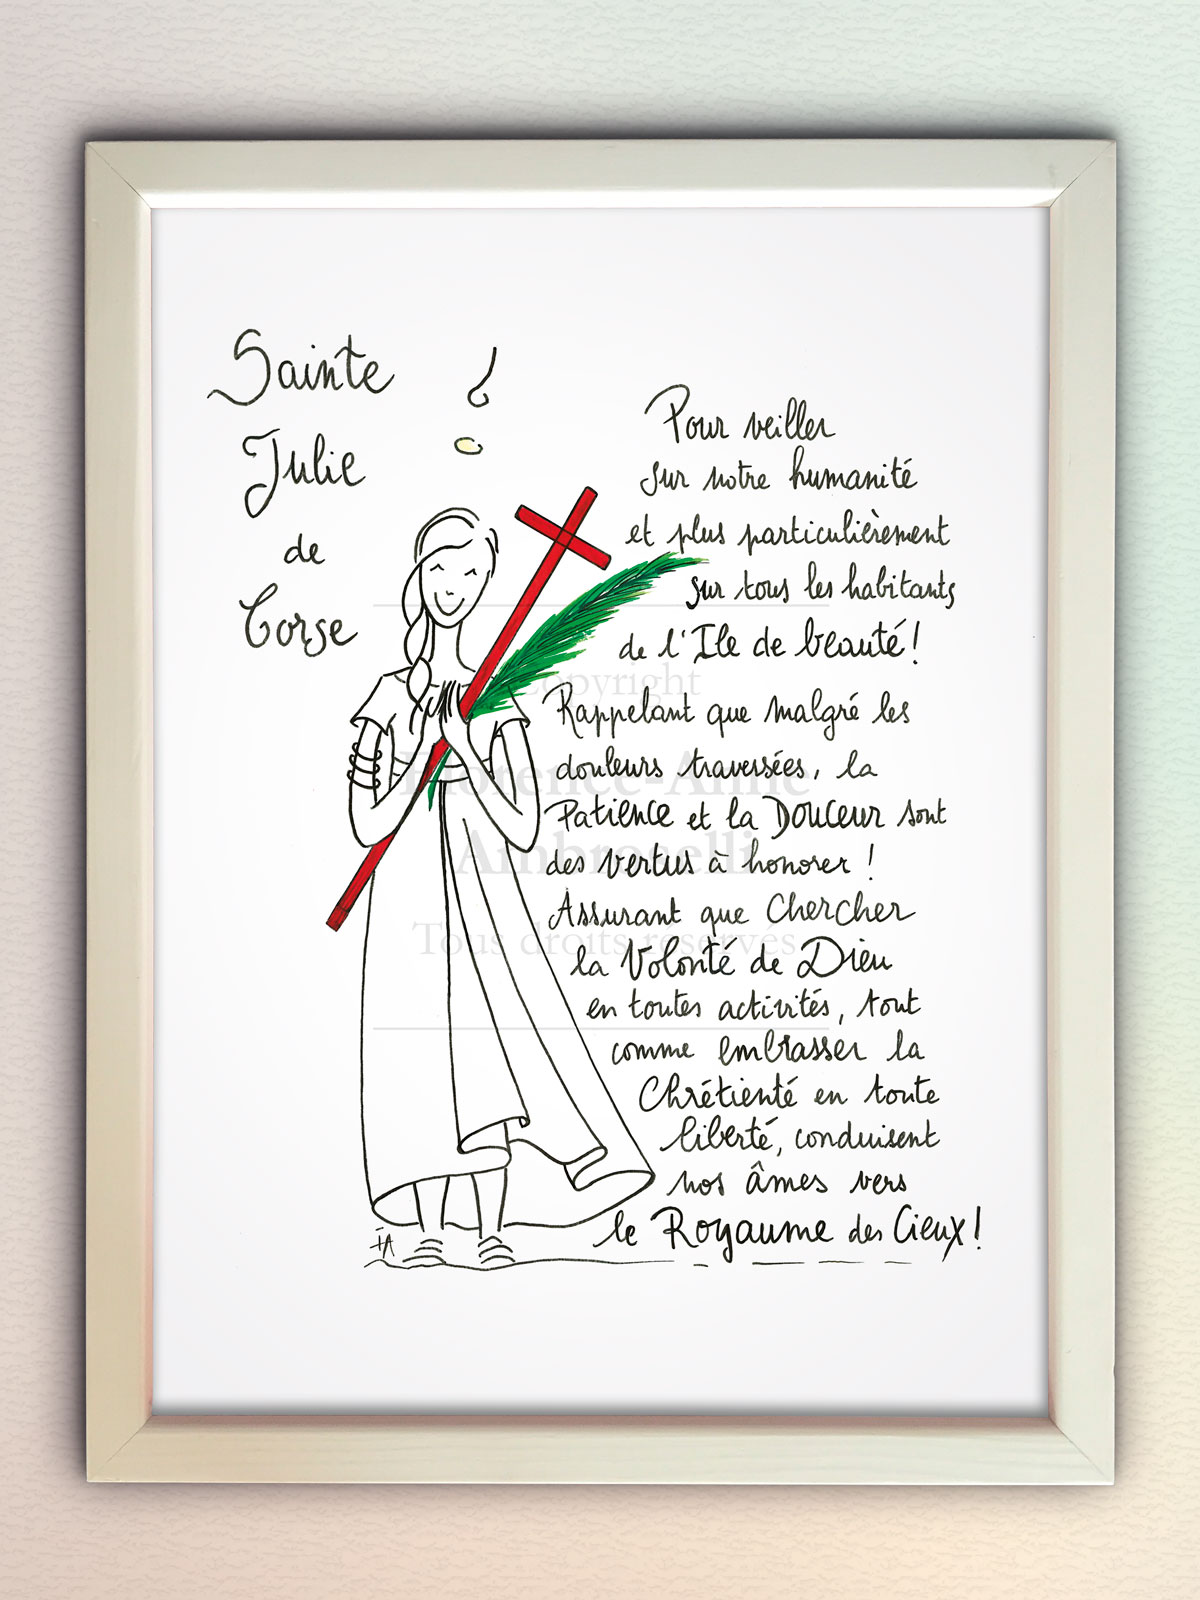 Sainte
Julie
de
Corse
Pour veiller
sur notre humanité
et plus particulièrement
sur tous les habitants
de l'Ile de beauté !
Rappelant que malgré les
douleurs traversées, la
Patience et la Douceur sont
des vertus à honorer !
Assurant que Chercher
la Volonté de Dieu
en toutes activités, tout
comme embrasser la
Chrétienté en toute
liberté, conduisent
nos âmes vers
le Royaume des Cieux !
FA
Copyright
Florence-Anne
Ambroselli
Tous droits réservés